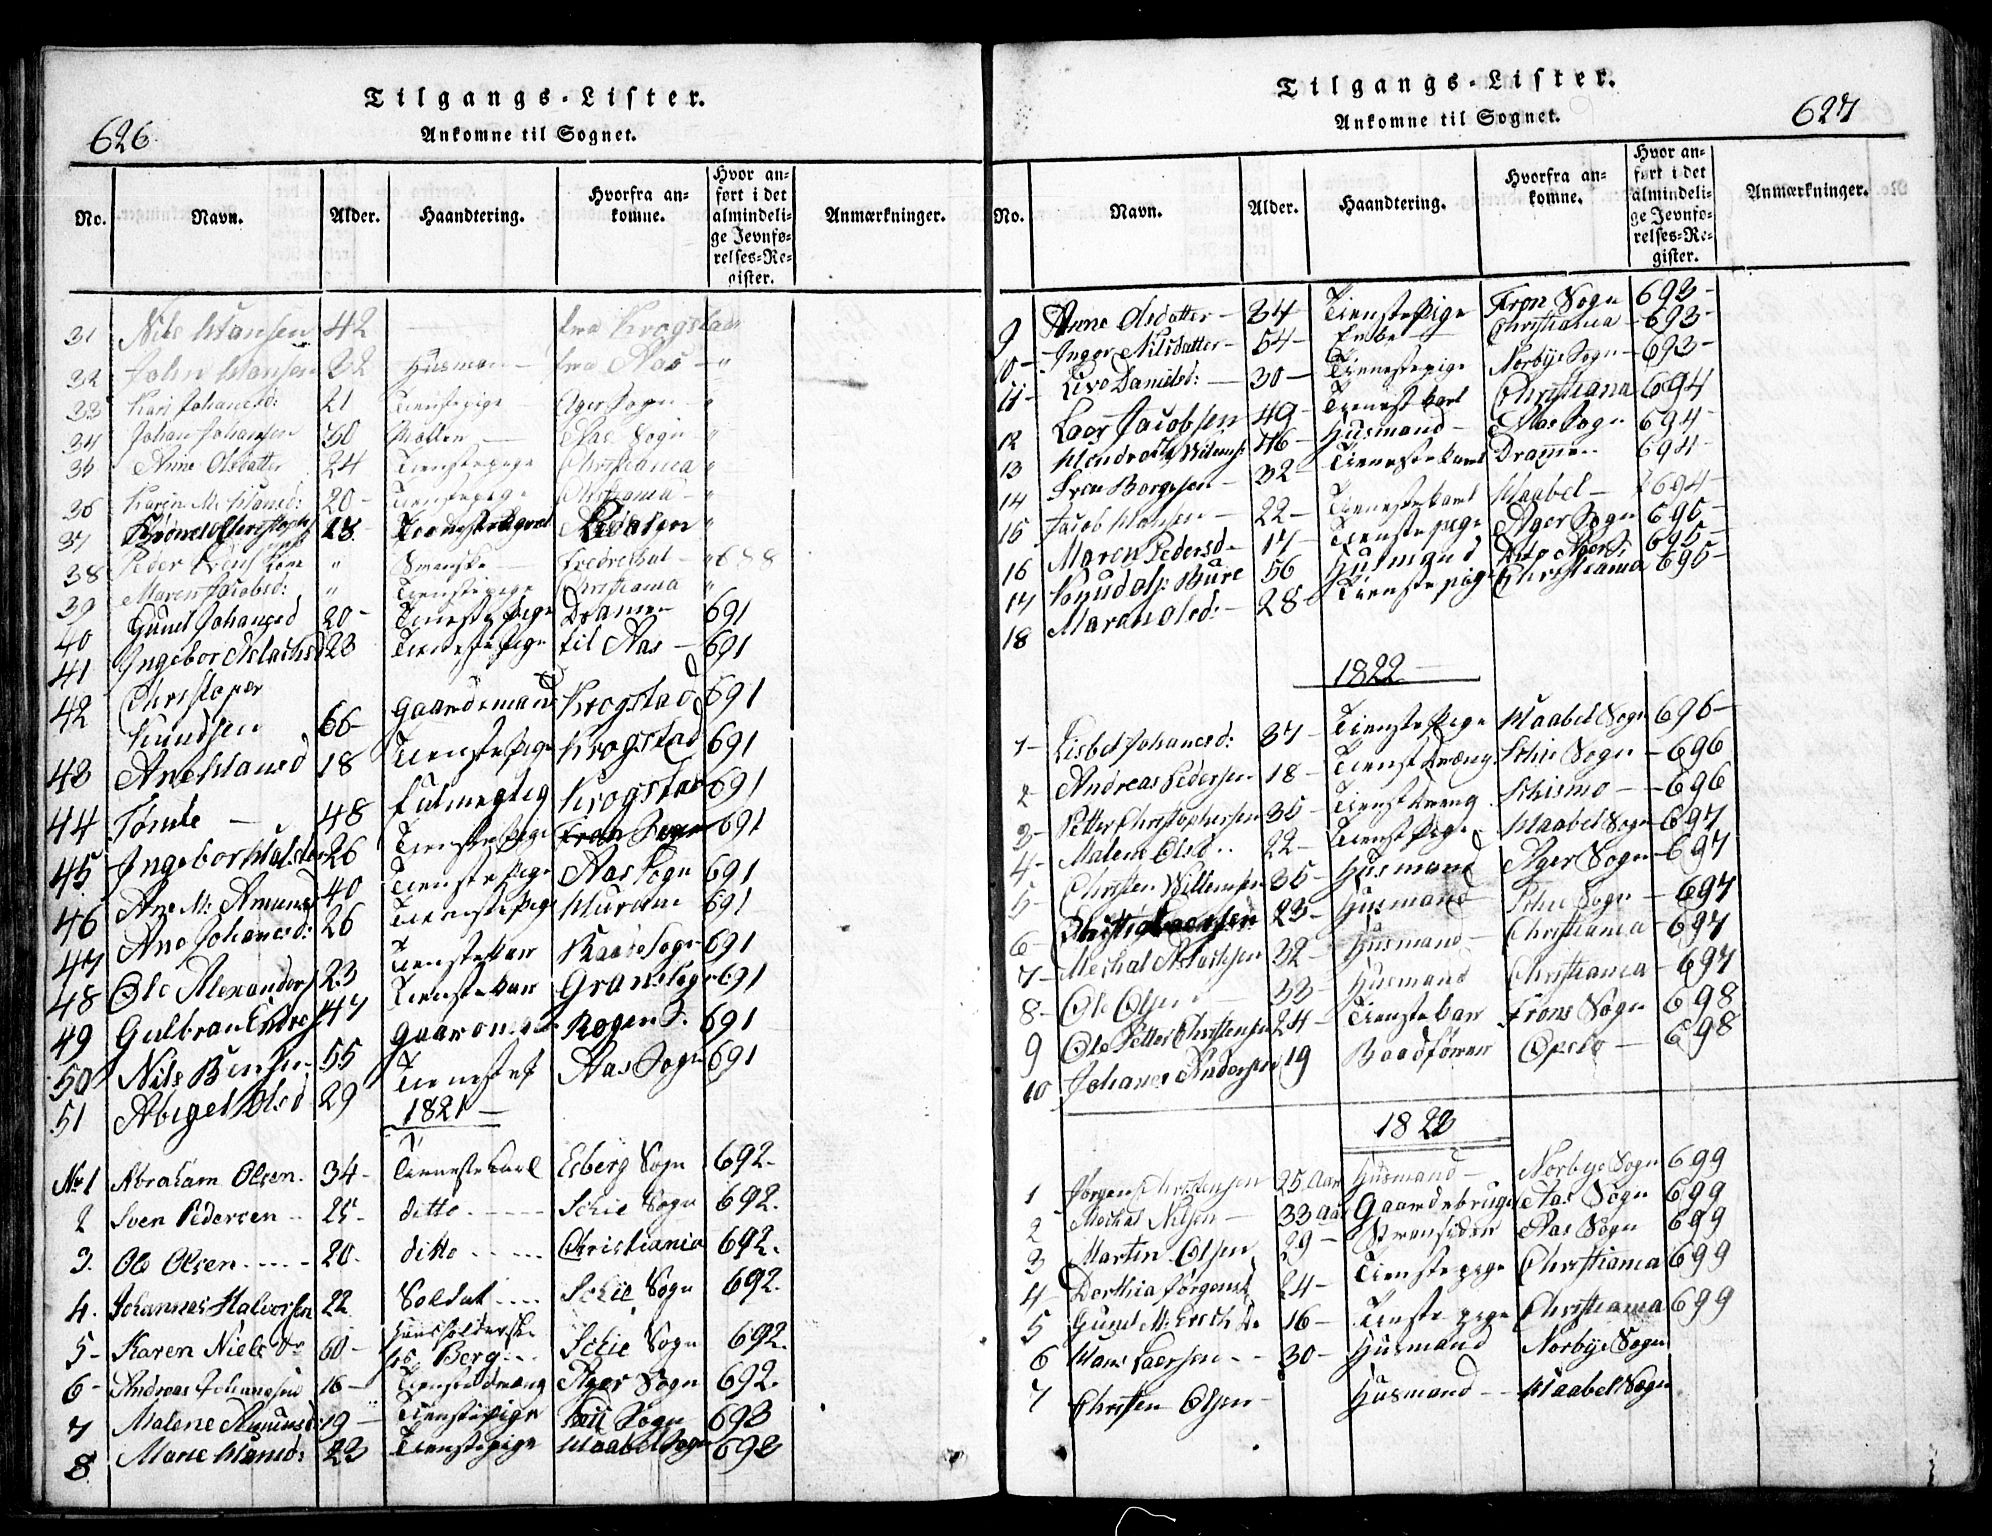 626
Tilgangs-Lister.
Ankomne til Sognet.
No. Navn. Alder. Haandtering. Hvorfra ankomne. Hvor anført i det almindelige Jevnførelses-Register. Anmærkninger.
31 Nils Hansen 42 fra Krogstad
32 John Hansen 32 Husman fra Aas "
33 Kari Johanesd: 21 Tienstepige Ager Sogn "
34 Johan Johansen 30 Aas Sogn "
35 Anne Olsdatter 24 Tienstepige Christiania "
36 Karen M. Hansd: 20 Tienstepige Christiania "
37 28
38 Peder " Svenske Fredrekhal " 688
39 Maren Jacobsd: " Tienstepige Christiania "
40 Gunel Johanesd 20 Tienstepige Dramen 691
41 Ingebor Aslachsd 23 Tienstepige til Aas 691
42 Christoper
Knudsen 66 Gaardmand Krogstad 691
43 Ane Hansd 18 Tienstepige Krogstad 691
44 Tømte 48 Fulmegtig Krogstad 691
45 Ingebor Halsten 26 Tienstepige 691
46 Ane M: Amunds 40 Tienstepige Aas Sogn 691
47 Ane Johanesd: 26 Tienstepige Hurdam 691
48 Ole Alexanders 23 Tienstekar Sogn 691
49 Gulbran 47 Tienstekar Gran Sogn 691
50 Nils 55 Gaardm 691
51 Abigel Olsd 29 Tienestep Aas Sogn 691
1821
No 1 Abraham Olsen. 34 Tienestekarl Esberg Sogn 692.
2 Sven Pedersen 25 ditto Schie Sogn 692.
3. Ole Olsen 20 ditto Christiania 692.
4. Johannes Halvorsen 22 Soldat Schie Sogn 692.
5 Karen Niels Dr 60 Huusholderske
hos Berg Schie Sogn 692.
6 Andreas Johannesen 16 Tienestedreng Ager Sogn 692.
7 Malene Amunsd: 19 Tienstepige Sogn 693
8 Marie Hansd: 23 Tienstepige Haabel Sogn 693
Tilgangs-Lister.
Ankomne til Sognet.
627
No. Navn. Alder. Haandtering. Hvorfra ankomne. Hvor anført i det almindelige Jevnførelses-Register. Anmærkninger.
9 Anne Olsdatter 34 Tienstepige Fron Sogn 693
10 Inger Nilsdatter 54 Enke Christiania 693
11 Lise Danielsd: 30 Tienestepige Norbye Sogn 693
12 Laers Jacobsen 49 Tienestkarl Christiania 694
13 46 Husmand Aas Sogn 694
14 Sven Borgesen 32 Tienestekarl Drammen 694
15 Jacob Hansen 22 Tienestekarl Haabel 694
16 Maren Pedersd 17 Tienestepige Ager Sogn 695
17 Knud Ols: Bure 56 Husmand 695
18 Maren Olsd: 28 Tienstepige Christiania 695
1822
1 Lisbet Johanesd: 37 Tienstepige Haabel Sogn 696
2 Andreas Pedersen 18 Tienstdræng Schie Sogn 696
3 Petter Christophersen 35 Tienstdreng Schismo 696
4 Malene Olsd 22 Tienstepige Haabel Sogn 697
5 Christen Willemsen 35 Husmand Ager Sogn 697
6 23 Husmand Schie Sogn 697
7 Mechal Aslachsen 32 Husmand Christiania 697
8 Ole Olsen 33 Husmand Christiania 697
9 Ole Petter Christensen 24 Tienstekar Frons Sogn 698
10 Johanes Andersen 19 Baadfører Opslo 698
1823
1 Jørgen Christensen 25 Aar Husmand Norbye Sogn 699
2 Mechal Nilsen 33 Aar Gaardebruger Aas Sogn 699
3 Martin Olsen 29 Stransider Aas Sogn 699
4 Dorthia Jørgensd 24 Tienstepige Christiania 699
5 Gunil M: 16 Tienstepige Christiania 699
6 Hans Laersen 30 Husmand Norbye Sogn
7 Christen Olsen Husmand Haabel Sogn